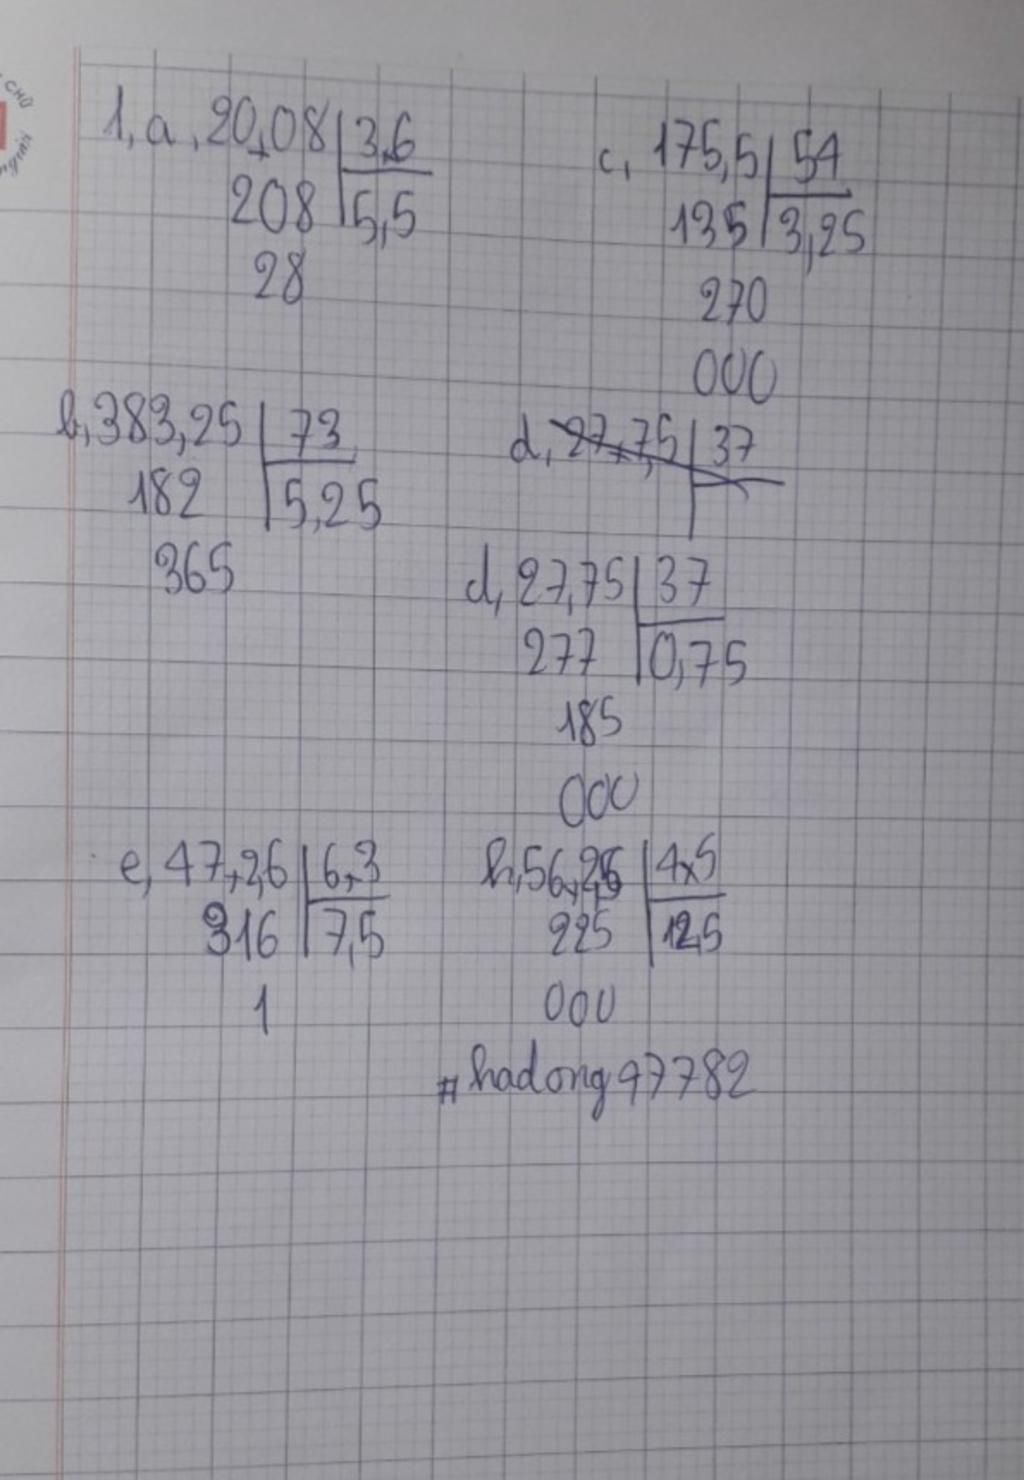 1, a, 20,08 3,6
208 5,5
28
c, 175,5 54
135 3,25
270
000
b, 383,25 73
182 5,25
365
d, 27,75 37
d, 27,75 37
277 0,75
185
000
e, 47,2,6 6,3
316 7,5
1
h, 56,25 4,5
225 12,5
000
#hadong97782